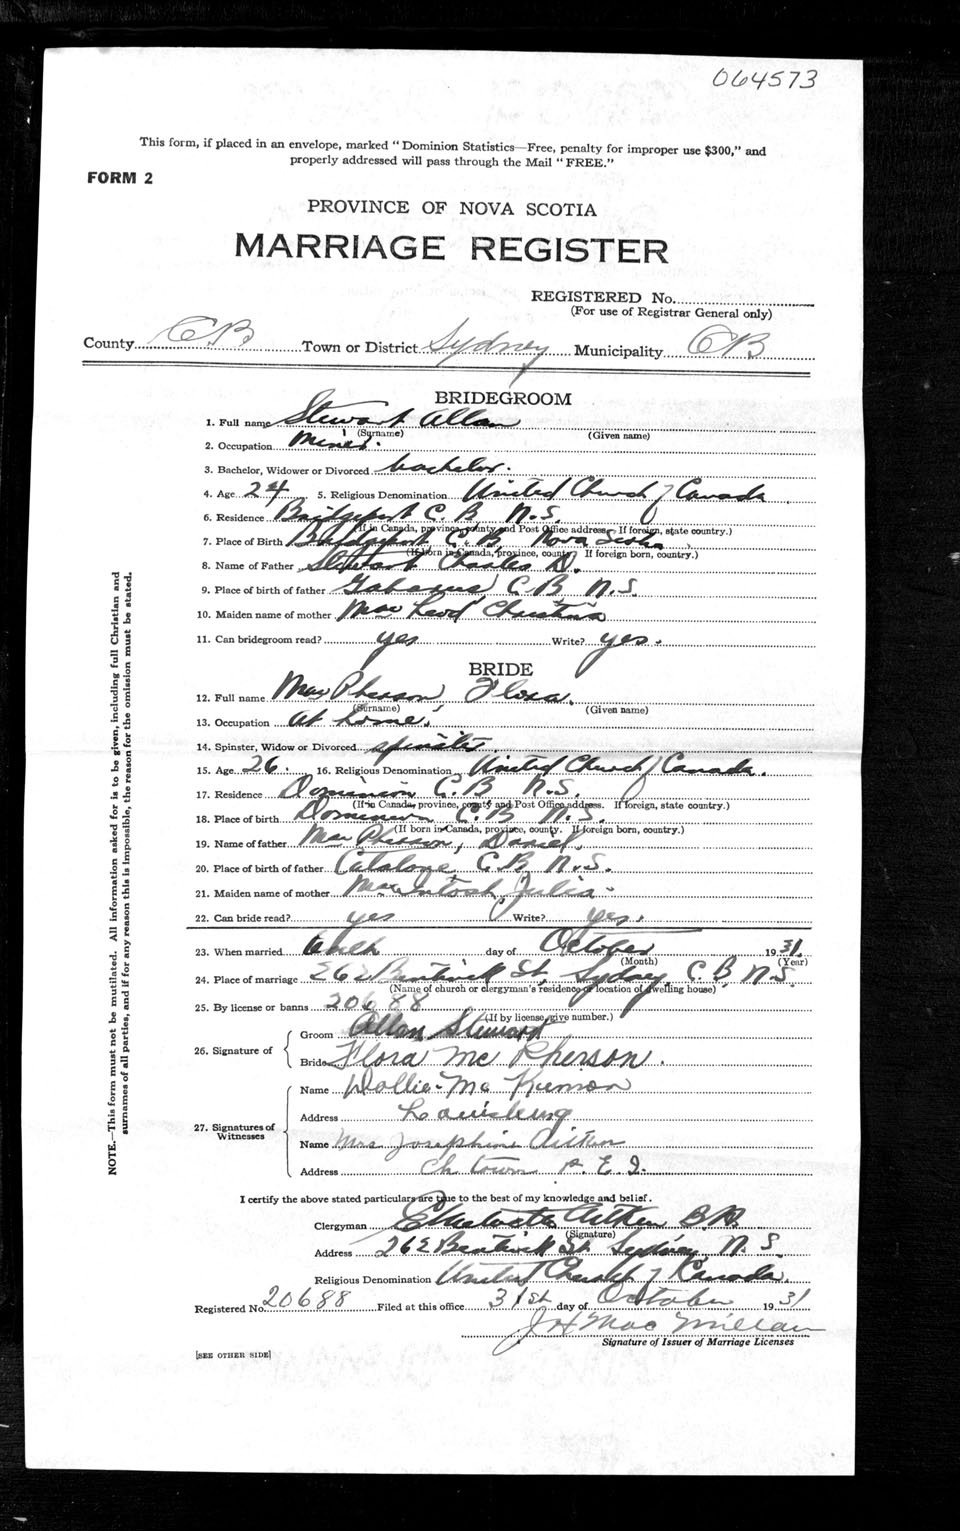 064573
This form, if placed in an envelope, marked “Dominion Statistics—Free, penalty for improper use $300,” and
properly addressed will pass through the Mail “FREE.”
FORM 2
PROVINCE OF NOVA SCOTIA
MARRIAGE REGISTER
REGISTERED No.
(For use of Registrar General only)
County CB Town or District Sydney Municipality CB
BRIDEGROOM
1. Full name Stewart Allan
(Surname) (Given name)
2. Occupation Miner.
3. Bachelor, Widower or Divorced bachelor.
4. Age 24 5. Religious Denomination United Church of Canada
6. Residence Bridgeport C. B. N.S.
(If in Canada, province, county and Post Office address. If foreign, state country.)
7. Place of Birth Bridgeport C.B. Nova Scotia
(If born in Canada, province, county. If foreign born, country.)
8. Name of Father Stewart Charles D.
9. Place of birth of father Gabarus C.B. N.S.
10. Maiden name of mother MacLeod Christina
11. Can bridegroom read? yes Write? yes.
BRIDE
12. Full name MacPherson, Flora.
(Surname) (Given name)
13. Occupation at home.
14. Spinster, Widow or Divorced spinster.
15. Age 26. 16. Religious Denomination United Church of Canada.
17. Residence Dominion C.B. N.S.
(If in Canada, province, county and Post Office address. If foreign, state country.)
18. Place of birth Dominion C.B. N.S.
(If born in Canada, province, county. If foreign born, country.)
19. Name of father MacPherson, Daniel.
20. Place of birth of father Catalone C.B. N.S.
21. Maiden name of mother MacIntosh, Julia.
22. Can bride read? yes Write? yes.
23. When married tenth day of October 1931.
(Month) (Year)
24. Place of marriage 262 Bentinck St. Sydney, C.B. N.S.
(Name of church or clergyman's residence or location of dwelling house)
25. By license or banns 20688
(If by license, give number.)
26. Signature of
Groom Allan Stewart
Bride Flora Mc Pherson.
27. Signatures of Witnesses
Name Dollie Mc Kinnon
Address Louisburg
Name Mrs Josephine Aitken
Address Ch town P.E.I.
I certify the above stated particulars are true to the best of my knowledge and belief.
Clergyman Aitken B.A.
(Signature)
Address 262 Bentinck St. Sydney, N.S.
Religious Denomination United Church of Canada.
Registered No. 20688 Filed at this office 31st day of October 1931
J H MacMillan
Signature of Issuer of Marriage Licenses
[SEE OTHER SIDE]
NOTE.—This form must not be mutilated. All information asked for is to be given, including full Christian and
surnames of all parties, and if for any reason this is impossible, the reason for the omission must be stated.